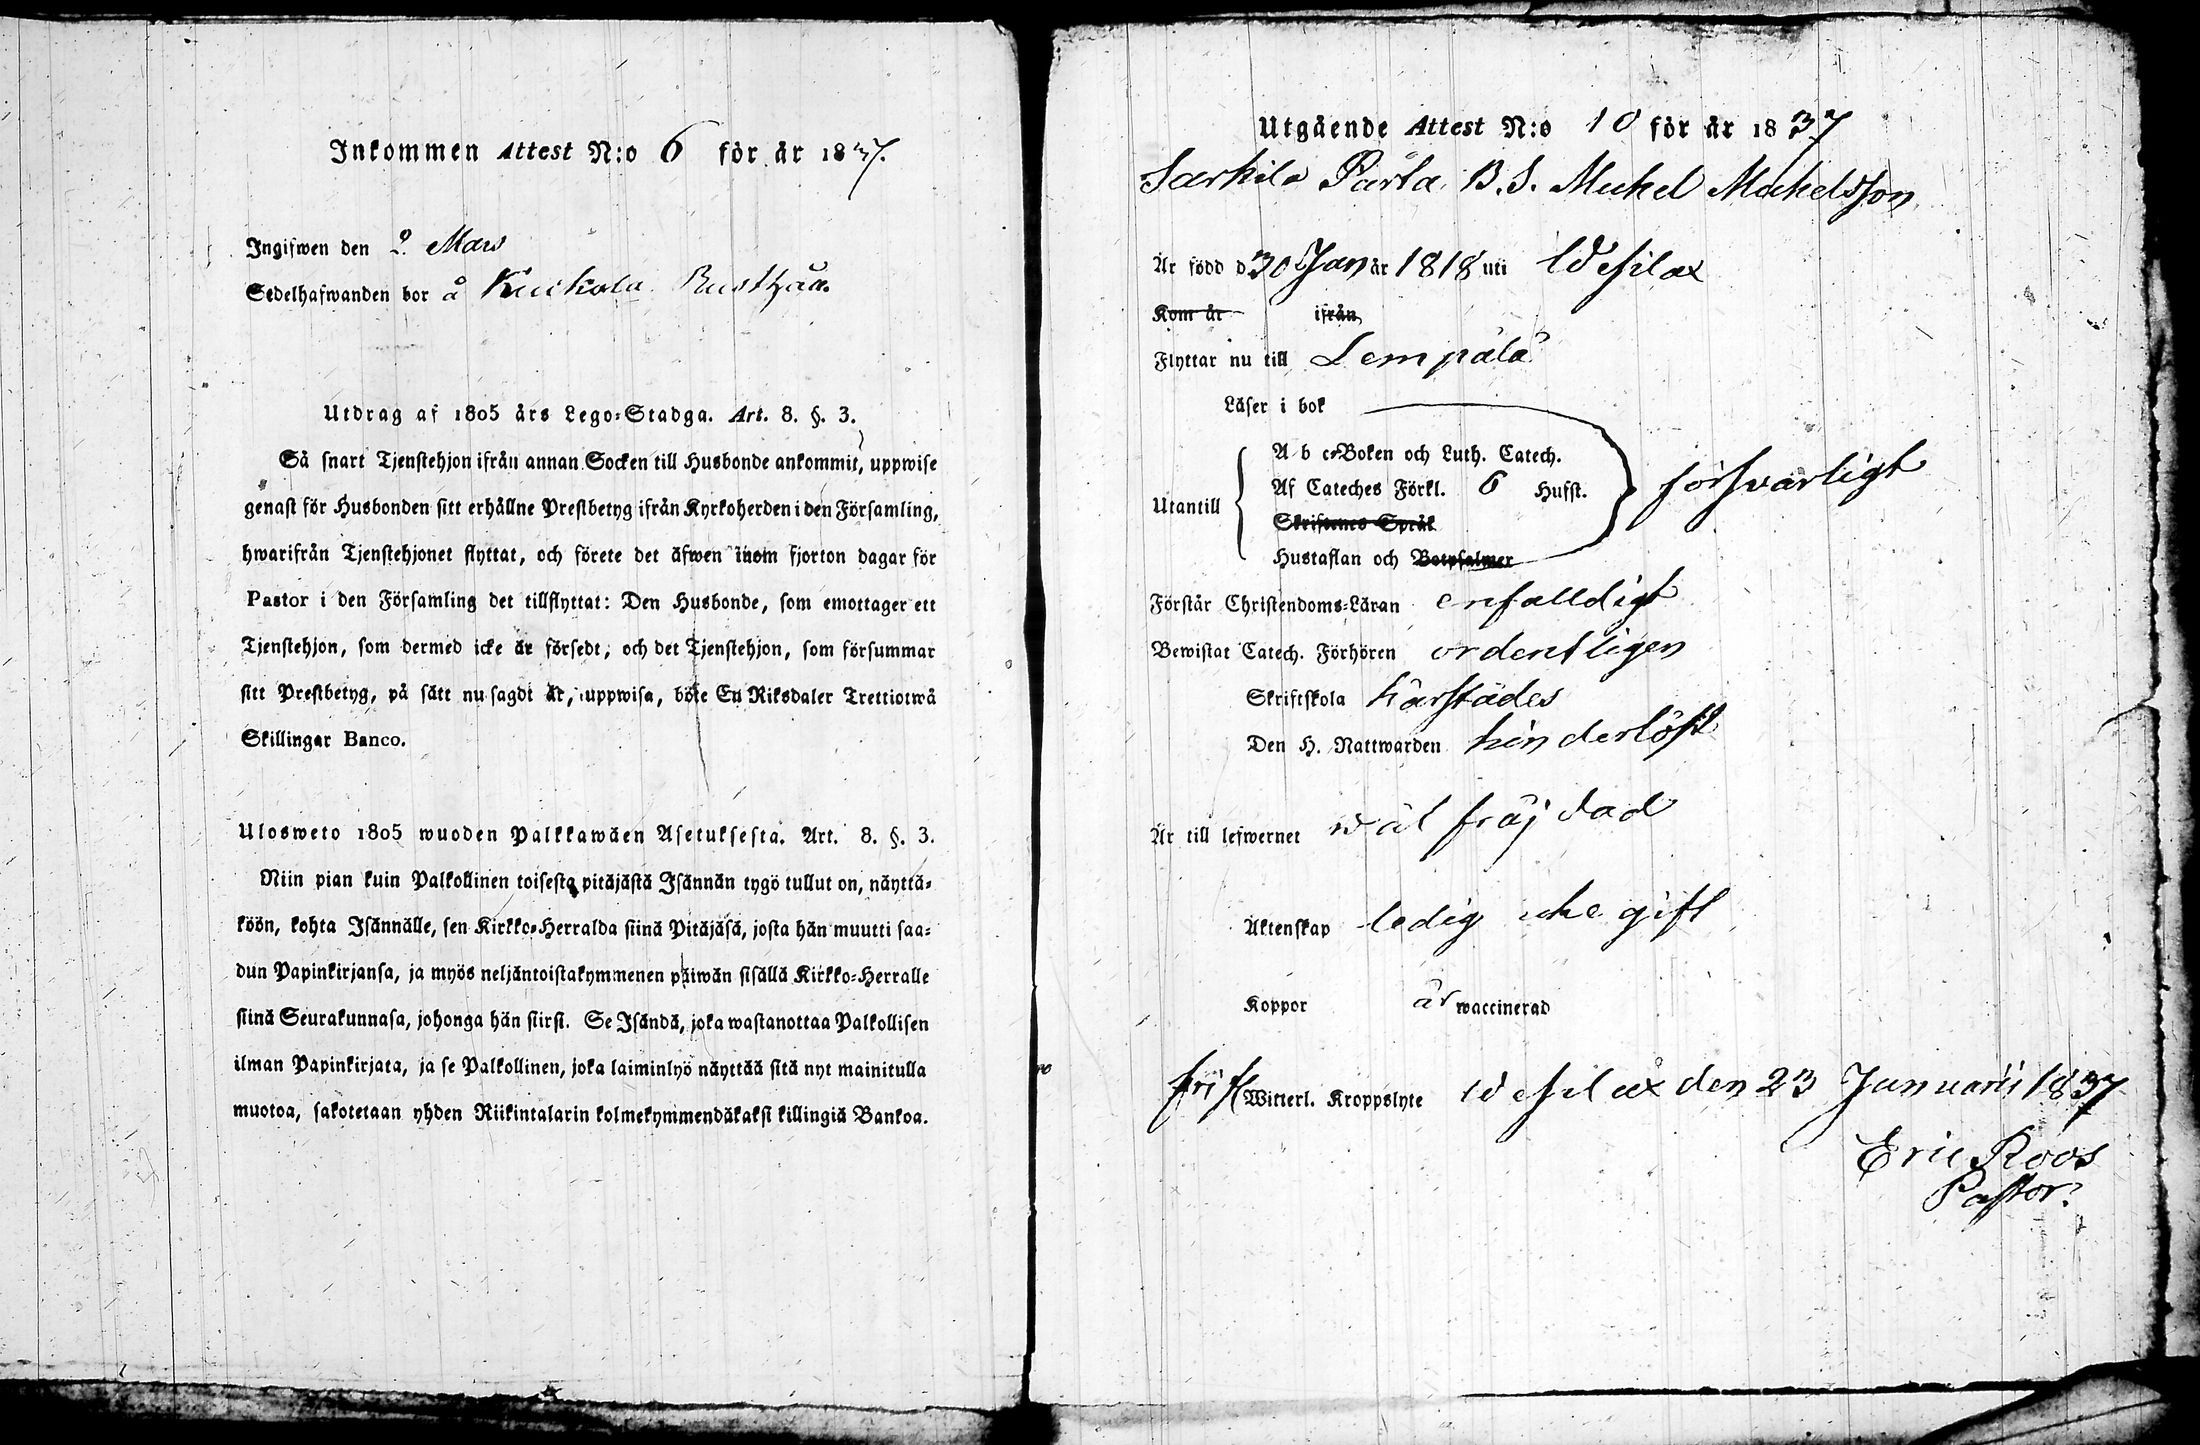 Inkommen Attest N:o 6 för år 1837.
Ingifwen den 2 Mars
Sedelhafwanden bor å Kuckola Rusthåll
Utdrag af 1805 års Lego-Stadga. Art. 8. §. 3.
Så snart Tjenstehjon ifrån annan Socken till Husbonde ankommit, uppwise
genast för Husbonden sitt erhållne Prestbetyg ifrån Kyrkoherden i den Församling,
hwarifrån Tjenstehjonet flyttat, och förete det äfwen inom fjorton dagar för
Pastor i den Församling det tillflyttat: Den Husbonde, som emottager ett
Tjenstehjon, som dermed icke är försedt, och det Tjenstehjon, som försummar
sitt Prestbetyg, på sätt nu sagdt är, uppwisa, böte En Riksdaler Trettiotwå
Skillingar Banco.
Ulosweto 1805 wuoden Palkkawäen Asetuksesta. Art. 8. §. 3.
Niin pian kuin Palkollinen toisesta pitäjästä Isännän tygö tullut on, näyttä-
köön, kohta Isännälle, sen Kirkko-Herralda siinä Pitäjäsä, josta hän muutti saa-
dun Papinkirjansa, ja myös neljäntoistakymmenen päiwän sisällä Kirkko-Herralle
siinä Seurakunnasa, johonga hän siirsi. Se Isändä, joka wastanottaa Palkollisen
ilman Papinkirjata, ja se Palkollinen, joka laiminlyö näyttää sitä nyt mainitulla
muotoa, sakotetaan yhden Riikintalarin kolmekymmendäkaksi killingiä Bankoa.
Utgående Attest N:o 10 för år 1837
Sarkila Pärla B.S. Mickel Mickelsson
Är född d 30 Januar 1818 uti Wesilax
Kom år ifrån
Flyttar nu till Lempälä
Läser i bok
A b c-Boken och Luth. Catech.
Utantill Af Cateches Förkl. 6 Hufst. försvarligt
Skriftenes Språk
Hustaflan och Botpsalmer
Förstår Christendoms-Läran enfalldigt
Bewistat Catech. Förhören ordentligen
Skriftskola härstädes
Den H. Nattwarden hinderlöst
Är till lefwernet wäl fräjdad
Äktenskap ledig icke gift
Koppor är waccinerad
fri f Witterl. Kroppslyte Wesilax den 23 Januarii 1837
Eric Roos
Pastor.